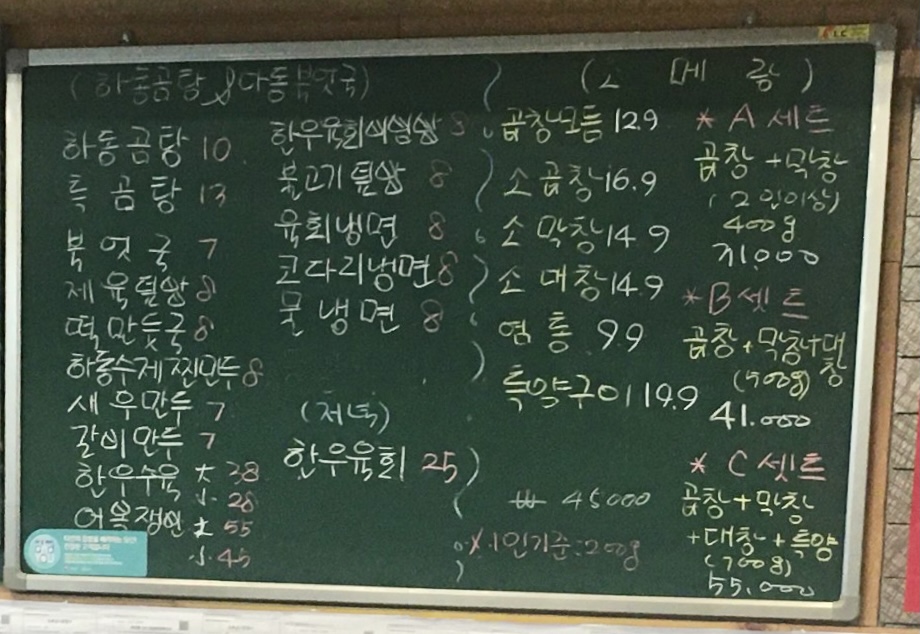 (하동곰탕 & 다동북엇국)
하동곰탕 10
특 곰탕 13
북엇국 7
제육덮밥 8
떡만둣국 8
하동수제찐만두 8
새우만두 7
갈비만두 7
한우수육 大 38
小 28
어복쟁반 大 55
小 45
한우육회비빔밥 8
불고기덮밥 8
육회냉면 8
코다리냉면 8
물냉면 8
(저녁)
한우육회 25
(소 곱창모듬 12.9
소곱창 16.9
소 막창 14.9
소 대창 14.9
염통 9.9
특양구이 19.9
₩ 45000
*1인기준:200g
* A 세트
곱창 + 막창
(2인이상)
400g
31.000
* B 셋트
곱창 + 막창 + 대창
(500g)
41.000
* C 셋트
곱창 + 막창
+ 대창 + 특양
(700g)
55.000